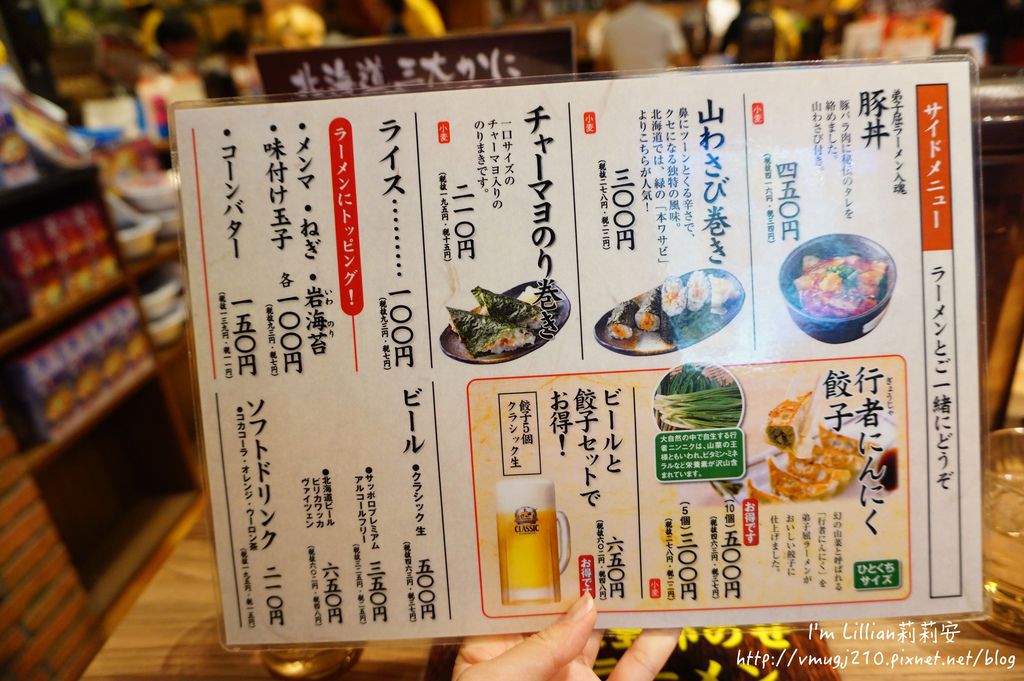 北海道三大かに
サイドメニュー
ラーメンとご一緒にどうぞ
弟子屈ラーメン入魂
豚丼
豚バラ肉に秘伝のタレを
絡めました。
山わさび付き。
四五〇円
(税抜四一六円・税三四円)
小麦
山わさび巻き
鼻にツーンとくる辛さで、
クセになる独特の風味。
北海道では、緑の「本ワサビ」
よりこちらが人気!
三〇〇円
(税抜二七八円・税二二円)
小麦
チャーマヨのり巻き
一口サイズの
チャーマヨ入りの
のりまきです。
二一〇円
(税抜一九五円・税十五円)
小麦
ライス………
一〇〇円
(税抜九三円・税七円)
ラーメンにトッピング!
・メンマ・ねぎ・岩海苔
いわ のり
・味付け玉子
各一〇〇円
(税抜九三円・税七円)
・コーンバター
一五〇円
(税抜一三九円・税一一円)
行者にんにく
ぎょうじゃ
餃子
幻の山菜と呼ばれる
「行者にんにく」を
弟子屈ラーメンが
おいしい餃子に
仕上げました。
ひとくち
サイズ
お得です
(10個)五〇〇円
(税抜四六三円・税三七円)
(5個)三〇〇円
(税抜二七八円・税二二円)
小麦
大自然の中で自生する行
者ニンニクは、山菜の王
様ともいわれ、ビタミン・ミネ
ラルなど栄養素が沢山含
まれています。
ビールと
餃子セットで
お得!
餃子5個
クラシック生
六五〇円
(税抜六〇二円・税四八円)
お得で
CLASSIC
ビール
●クラシック 生
五〇〇円
(税抜四六三円・税三七円)
●サッポロプレミアム
アルコールフリー
三五〇円
(税抜三二四円・税二六円)
●北海道ビール
ピリカワッカ
ヴァイツェン
六五〇円
(税抜六〇二円・税四八円)
ソフトドリンク
●コカコーラ・オレンジ・ウーロン茶
二一〇円
(税抜一九五円・税一五円)
I'm Lillian莉莉安
http://vmugj210.pixnet.net/blog